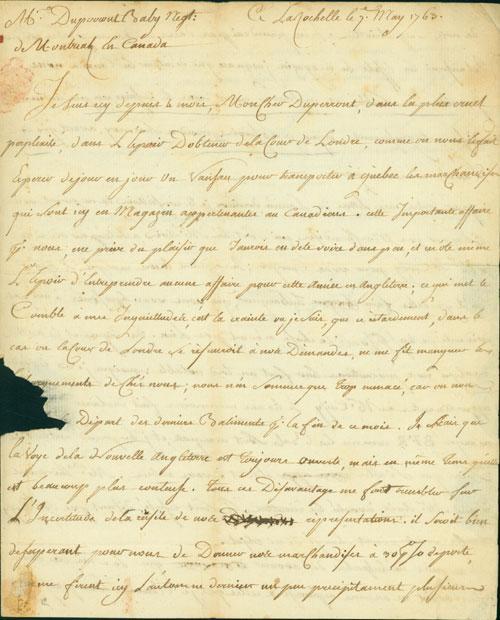 Mr. Duperront Baby Negt: a La Rochelle le 7 May 1763.
de Montreal en Canada
Je suis icy depuis 4 mois, Mon Cher Duperront, dans la plus cruel
perplexité, dans L'Espoir D'obtenir de la Cour de Londre, comme on nous le fait
Esperer de jour en jour Un Vaisseau pour transporter a quebec les marchandises
qui sont icy en Magazin appartenantes au Canadiens. cette Importante affaire
pr nous, me prive du plaisir que J'aurois eu de te voire dans peu, et m'ote même
L'Espoir d'Entreprendre aucune affaire pour cette Année en Angleterre; ce qui met le
Comble a mes Inquietudes, c'est la crainte ou je suis, que ce retardement, dans le
cas ou la Cour de Londre se refuseroit à notre Demandes, ne me fit manquer les
Batiments de chés nous; nous n'en sommes que trop menacé, car on nous
Départ des derniers Batiments pr la fin de ce mois. Je sçais que
la Voye de la Nouvelle Angleterre est toujours ouverte, mais en même tems qu'elle
est beaucoup plus couteuse. Tous ces Désavantage me font trembler sur
L'Incertitude de la reusite de notre representations. il seroit bien
desesperant pour nous de Donner notre marchandises à 30 p% de perte,
comme firent icy L'automne dernier un peu precipitament plusieurs